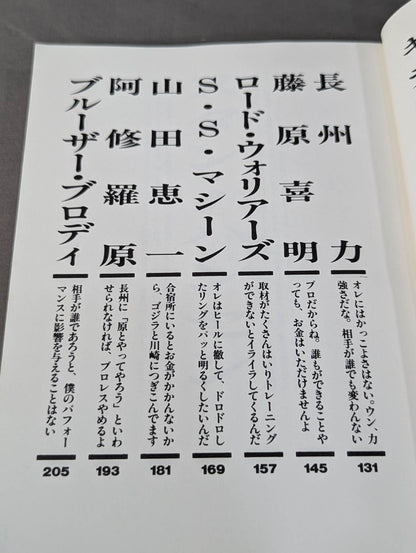 長州力
オレにはかっこよさはない。ウン、力
強さだな。相手が誰でも変わんない
131
藤原喜明
プロだからね。誰もができることや
っても、お金はいただけませんよ
145
ロード・ウォリアーズ
取材がたくさんはいりトレーニング
ができないとイライラしてくるんだ
157
S・S・マシーン
オレはヒールに徹して、ドロドロし
たリングをパッと明るくしたいんだ
169
山田恵一
合宿所にいるとお金がかかんないか
ら、ゴジラと川崎につぎこんでます
181
阿修羅原
長州に「原とやってやろう」といわ
せられなければ、プロレスやめるよ
193
ブルーザー・ブロディ
相手が誰であろうと、僕のパフォー
マンスに影響を与えることはない
205